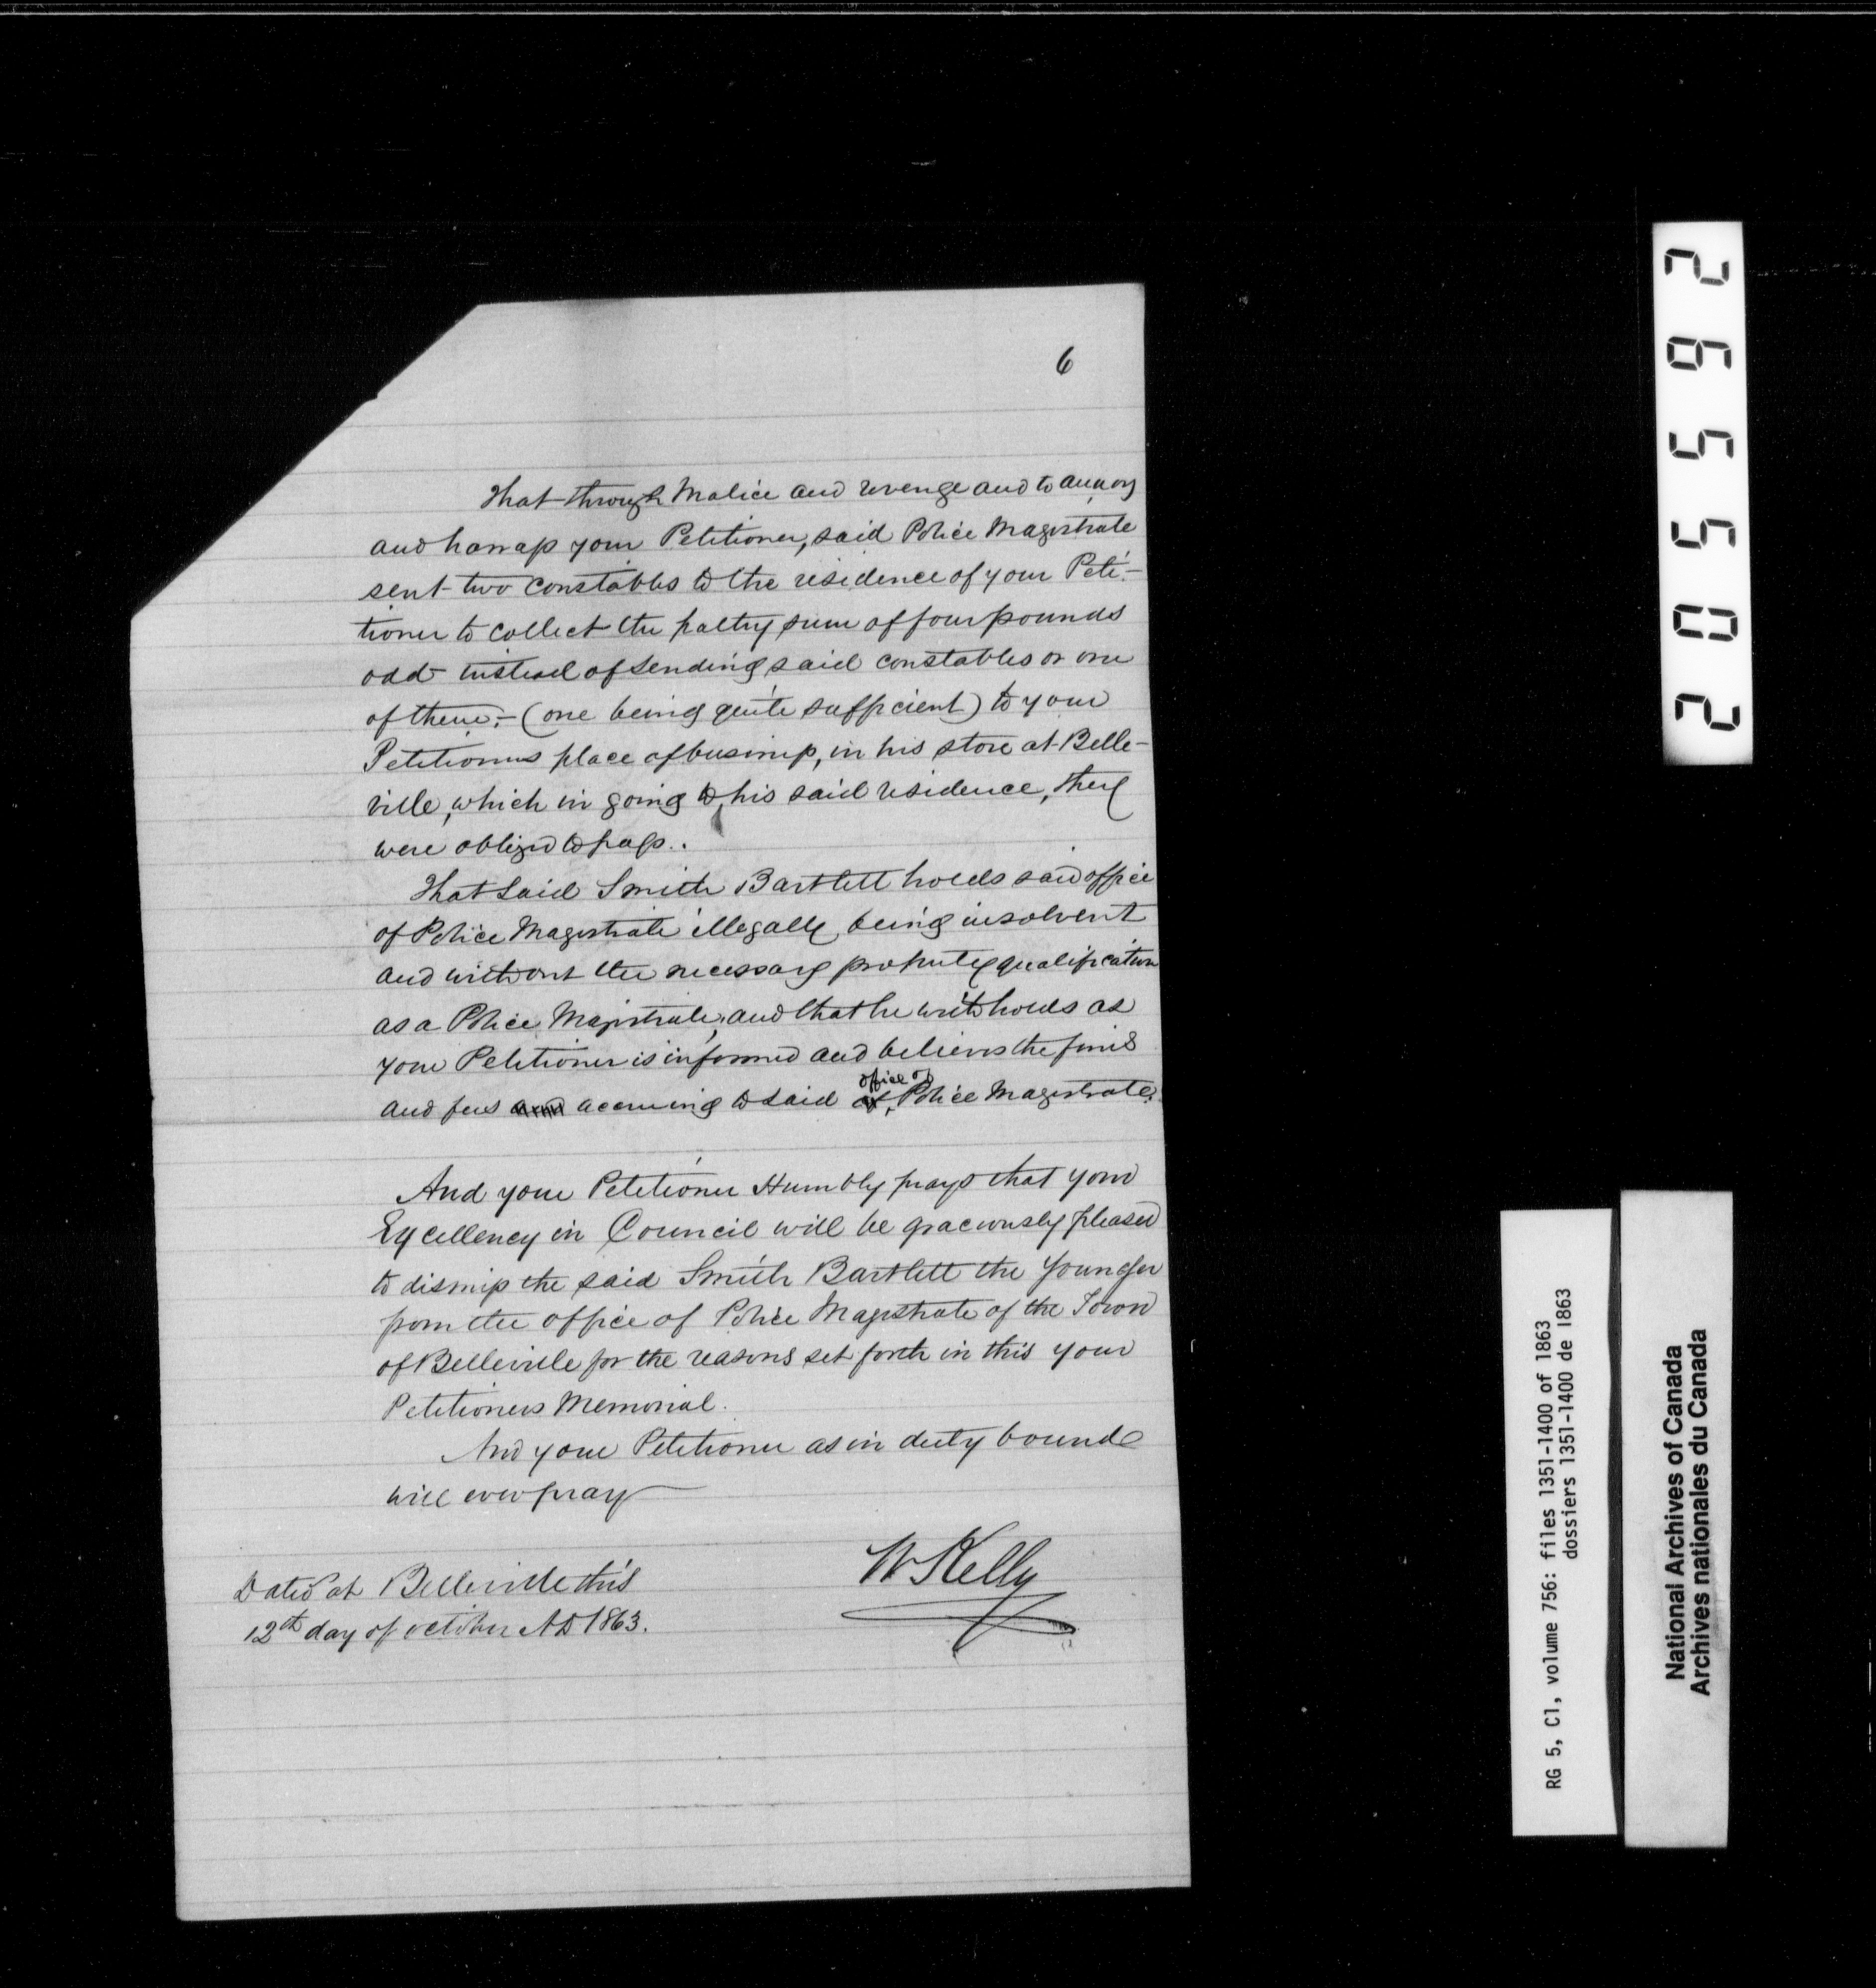 6
That through Malice and revenge and to annoy
and harrass your Petitioner, said Police Magistrate
sent two constables to the residence of your Peti-
tioner to collect the paltry sum of four pounds
odd instead of sending said constables or one
of them - (one being quite sufficient) to your
Petitioners place of business, in his store at Belle-
ville, which in going to his said residence, they
were obliged to pass.
That said Smith Bartlett holds said office
of Police Magistrate illegally being insolvent
and without the necessary property qualification
as a Police Magistrate, and that he withholds as
your Petitioner is informed and believes the fines
and fees accruing to said office of Police Magistrate.
And your Petitioner Humbly prays that your
Excellency in Council will be graciously pleased
to dismiss the said Smith Bartlett the Younger
from the office of Police Magistrate of the Town
of Belleville for the reasons set forth in this your
Petitioners Memorial.
And your Petitioner as in duty bound
will ever pray
W Kelly
Dated at Belleville this
12th day of october AD 1863.
205562
RG 5, C1, volume 756: files 1351-1400 of 1863
dossiers 1351-1400 de 1863
National Archives of Canada
Archives nationales du Canada